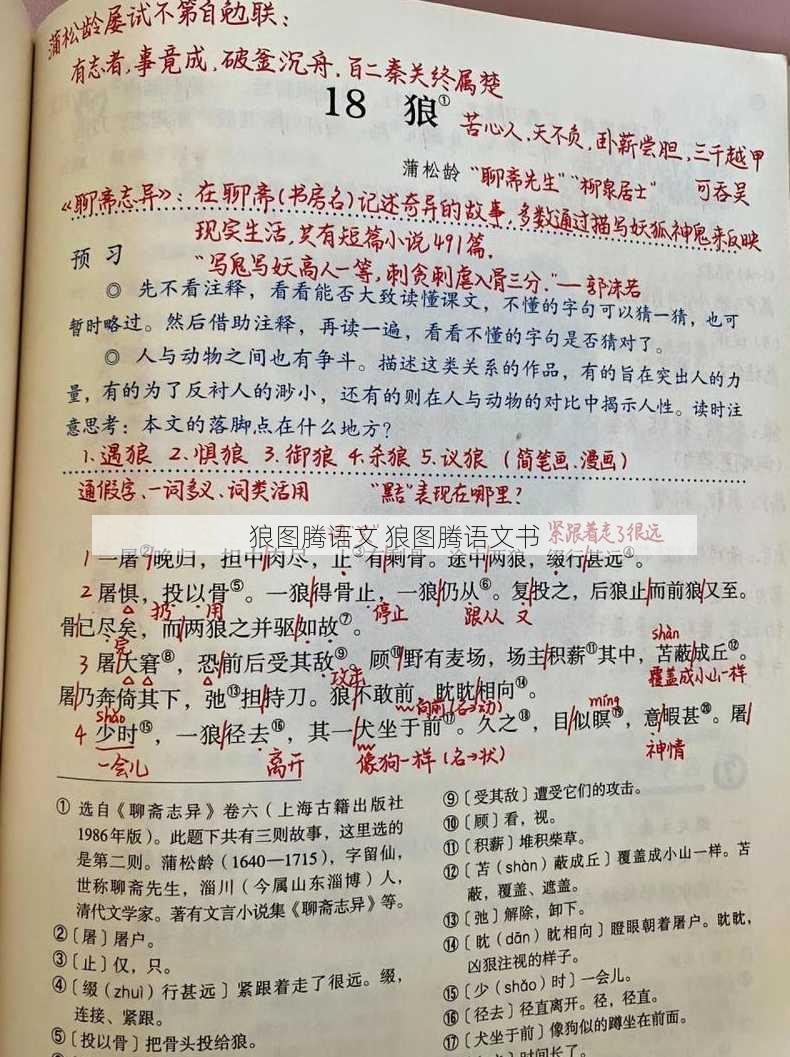 蒲松龄屡试不第自勉联：
有志者，事竟成，破釜沉舟，百二秦关终属楚
18 狼①
苦心人，天不负，卧薪尝胆，三千越甲
可吞吴
蒲松龄 “聊斋先生”“柳泉居士”
《聊斋志异》：在聊斋（书房名）记述奇异的故事，多数通过描写妖狐神鬼来反映
现实生活，共有短篇小说491篇。
预习
“写鬼写妖高人一等，刺贪刺虐入骨三分。”—郭沫若
◎ 先不看注释，看看能否大致读懂课文，不懂的字句可以猜一猜，也可
暂时略过。然后借助注释，再读一遍，看看不懂的字句是否猜对了。
◎ 人与动物之间也有争斗。描述这类关系的作品，有的旨在突出人的力
量，有的为了反衬人的渺小，还有的则在人与动物的对比中揭示人性。读时注
意思考：本文的落脚点在什么地方？
1.遇狼 2.惧狼 3.御狼 4.杀狼 5.议狼（简笔画.漫画）
通假字、一词多义、词类活用 “黠”表现在哪里？
狼图腾语文 狼图腾语文书
紧跟着走了很远
1 一屠②晚归，担中肉尽，止③有剩骨。途中两狼，缀行甚远④。
2 屠惧，投以骨⑤。一狼得骨止，一狼仍从⑥。复投之，后狼止而前狼又至。
扔 用 停止 跟从 又
骨已尽矣，而两狼之并驱如故⑦。
完
shàn
3 屠大窘⑧，恐前后受其敌⑨。顾⑩野有麦场，场主积薪⑪其中，苫蔽成丘⑫。
攻击 覆盖成小山一样
屠乃奔倚其下，弛⑬担持刀。狼不敢前，眈眈相向⑭。
shǎo 向前（名→动） míng
4 少时⑮，一狼径去⑯，其一犬坐于前⑰。久之⑱，目似瞑⑲，意暇甚⑳。屠
一会儿 离开 像狗一样（名→状） 神情
① 选自《聊斋志异》卷六（上海古籍出版社
1986年版）。此题下共有三则故事，这里选的
是第二则。蒲松龄（1640—1715），字留仙，
世称聊斋先生，淄川（今属山东淄博）人，
清代文学家。著有文言小说集《聊斋志异》等。
②〔屠〕屠户。
③〔止〕仅，只。
④〔缀（zhuì）行甚远〕紧跟着走了很远。缀，
连接、紧跟。
⑤〔投以骨〕把骨头投给狼。
⑨〔受其敌〕遭受它们的攻击。
⑩〔顾〕看，视。
⑪〔积薪〕堆积柴草。
⑫〔苫（shàn）蔽成丘〕覆盖成小山一样。苫
蔽，覆盖、遮盖。
⑬〔弛〕解除，卸下。
⑭〔眈（dān）眈相向〕瞪眼朝着屠户。眈眈，
凶狠注视的样子。
⑮〔少（shǎo）时〕一会儿。
⑯〔径去〕径直离开。径，径直。
⑰〔犬坐于前〕像狗似的蹲坐在前面。